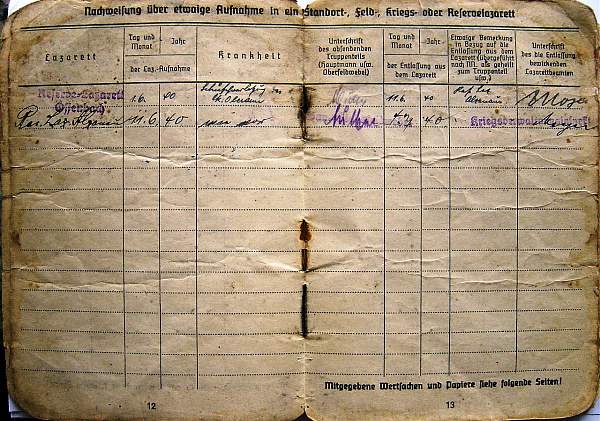 Nachweisung über etwaige Aufnahme in ein Standort-, Feld-, Kriegs- oder Reservelazarett
Lazarett
Tag und Monat
Jahr
der Laz.-Aufnahme
Krankheit
Unterschrift des absendenden Truppenteils (Hauptmann usw. Oberfeldwebel)
Tag und Monat
Jahr
der Entlassung aus dem Lazarett
Etwaige Bemerkung in Bezug auf die Entlassung aus dem Lazarett (übergeführt nach NN, als geheilt zum Truppenteil usw.)
Unterschrift des die Entlassung bewirkenden Lazarettbeamten
Reserve-Lazarett 1.6. 40 11.6. 40
Offenbach
11.6. 40 wie vor 40
Mitgegebene Wertsachen und Papiere siehe folgende Seiten!
12
13